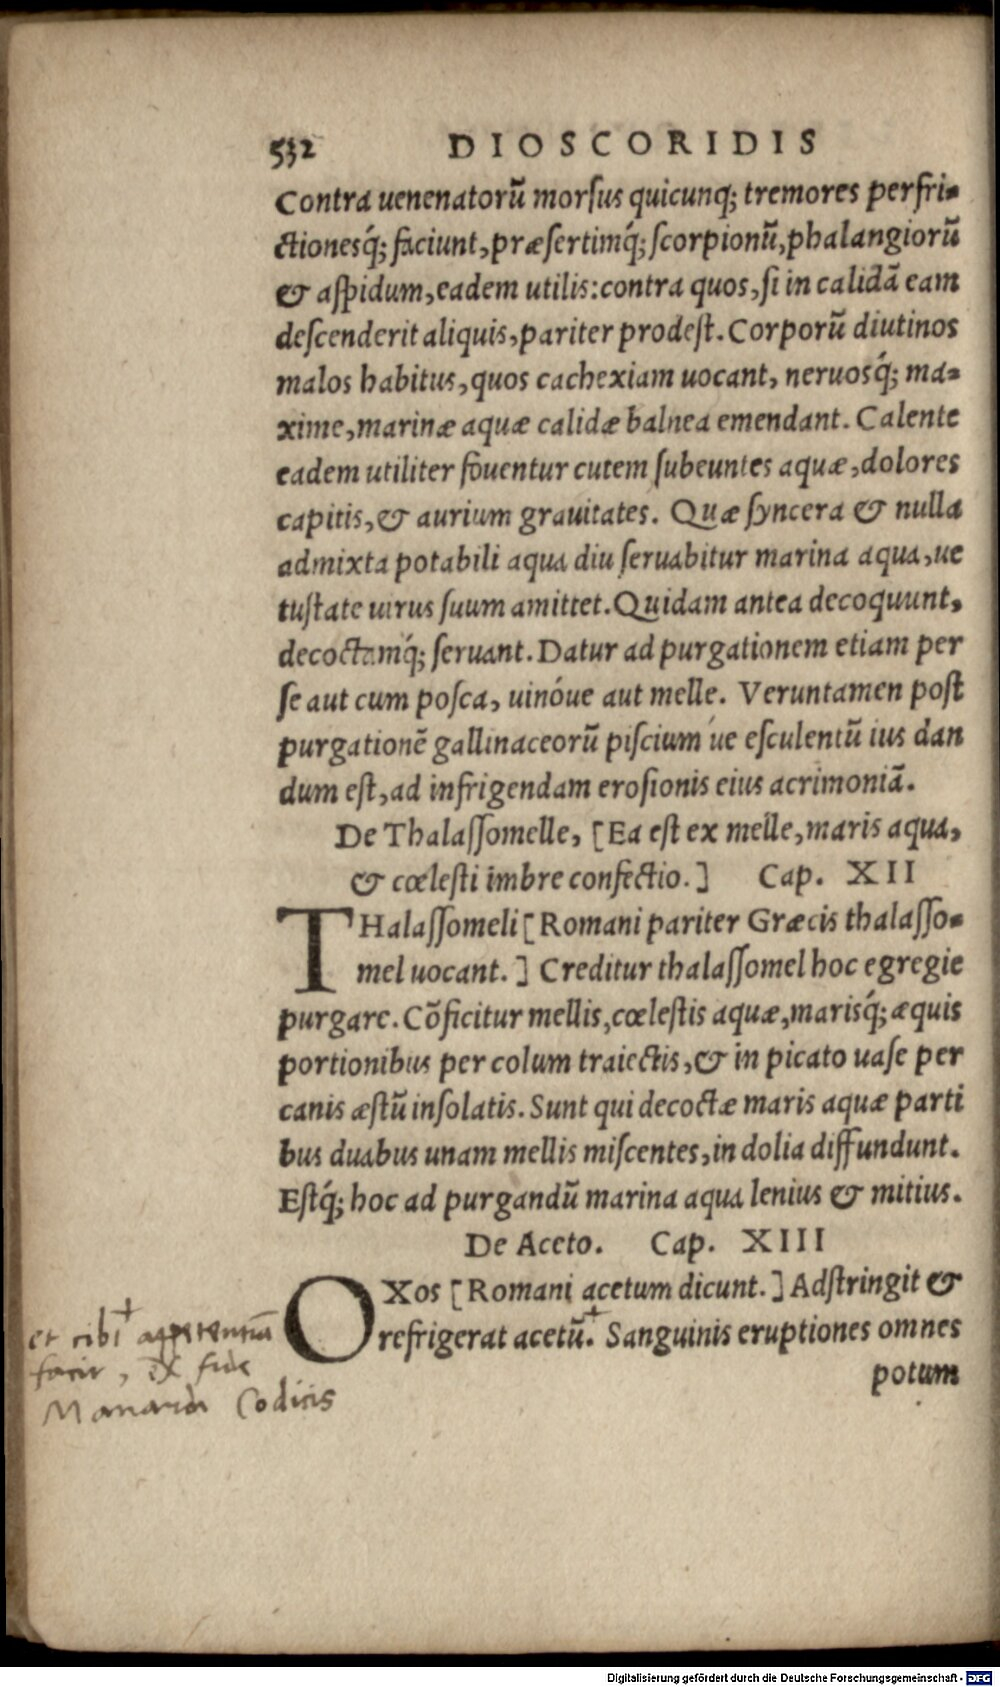 532 DIOSCORIDIS
Contra uenenatorū morsus quicunq; tremores perfri-
ctionesq́; faciunt, præsertimq́; scorpionū, phalangiorū
& aspidum, eadem utilis: contra quos, si in calidā eam
descenderit aliquis, pariter prodest. Corporū diutinos
malos habitus, quos cachexiam uocant, neruosq́; ma-
xime, marinæ aquæ calidæ balnea emendant. Calente
eadem utiliter fouentur cutem subeuntes aquæ, dolores
capitis, & aurium grauitates. Quæ syncera & nulla
admixta potabili aqua diu seruabitur marina aqua, ue
tustate uirus suum amittet. Quidam antea decoquunt,
decoctamq́; seruant. Datur ad purgationem etiam per
se aut cum posca, uinóue aut melle. Veruntamen post
purgationē gallinaceorū piscium úe esculentū ius dan
dum est, ad infrigendam erosionis eius acrimoniā.
De Thalassomelle, [Ea est ex melle, maris aqua,
& cœlesti imbre confectio.] Cap. XII
THalassomeli [Romani pariter Græcis thalasso-
mel uocant.] Creditur thalassomel hoc egregie
purgare. Cōficitur mellis, cœlestis aquæ, marisq́; æquis
portionibus per colum traiectis, & in picato uase per
canis æstū insolatis. Sunt qui decoctæ maris aquæ parti
bus duabus unam mellis miscentes, in dolia diffundunt.
Estq́; hoc ad purgandū marina aqua lenius & mitius.
De Aceto. Cap. XIII
OXos [Romani acetum dicunt.] Adstringit &
refrigerat acetū.+ Sanguinis eruptiones omnes
potum
+
et cibi appetentiā
facit, ex fide
Manardi Codicis
Digitalisierung gefördert durch die Deutsche Forschungsgemeinschaft - DFG